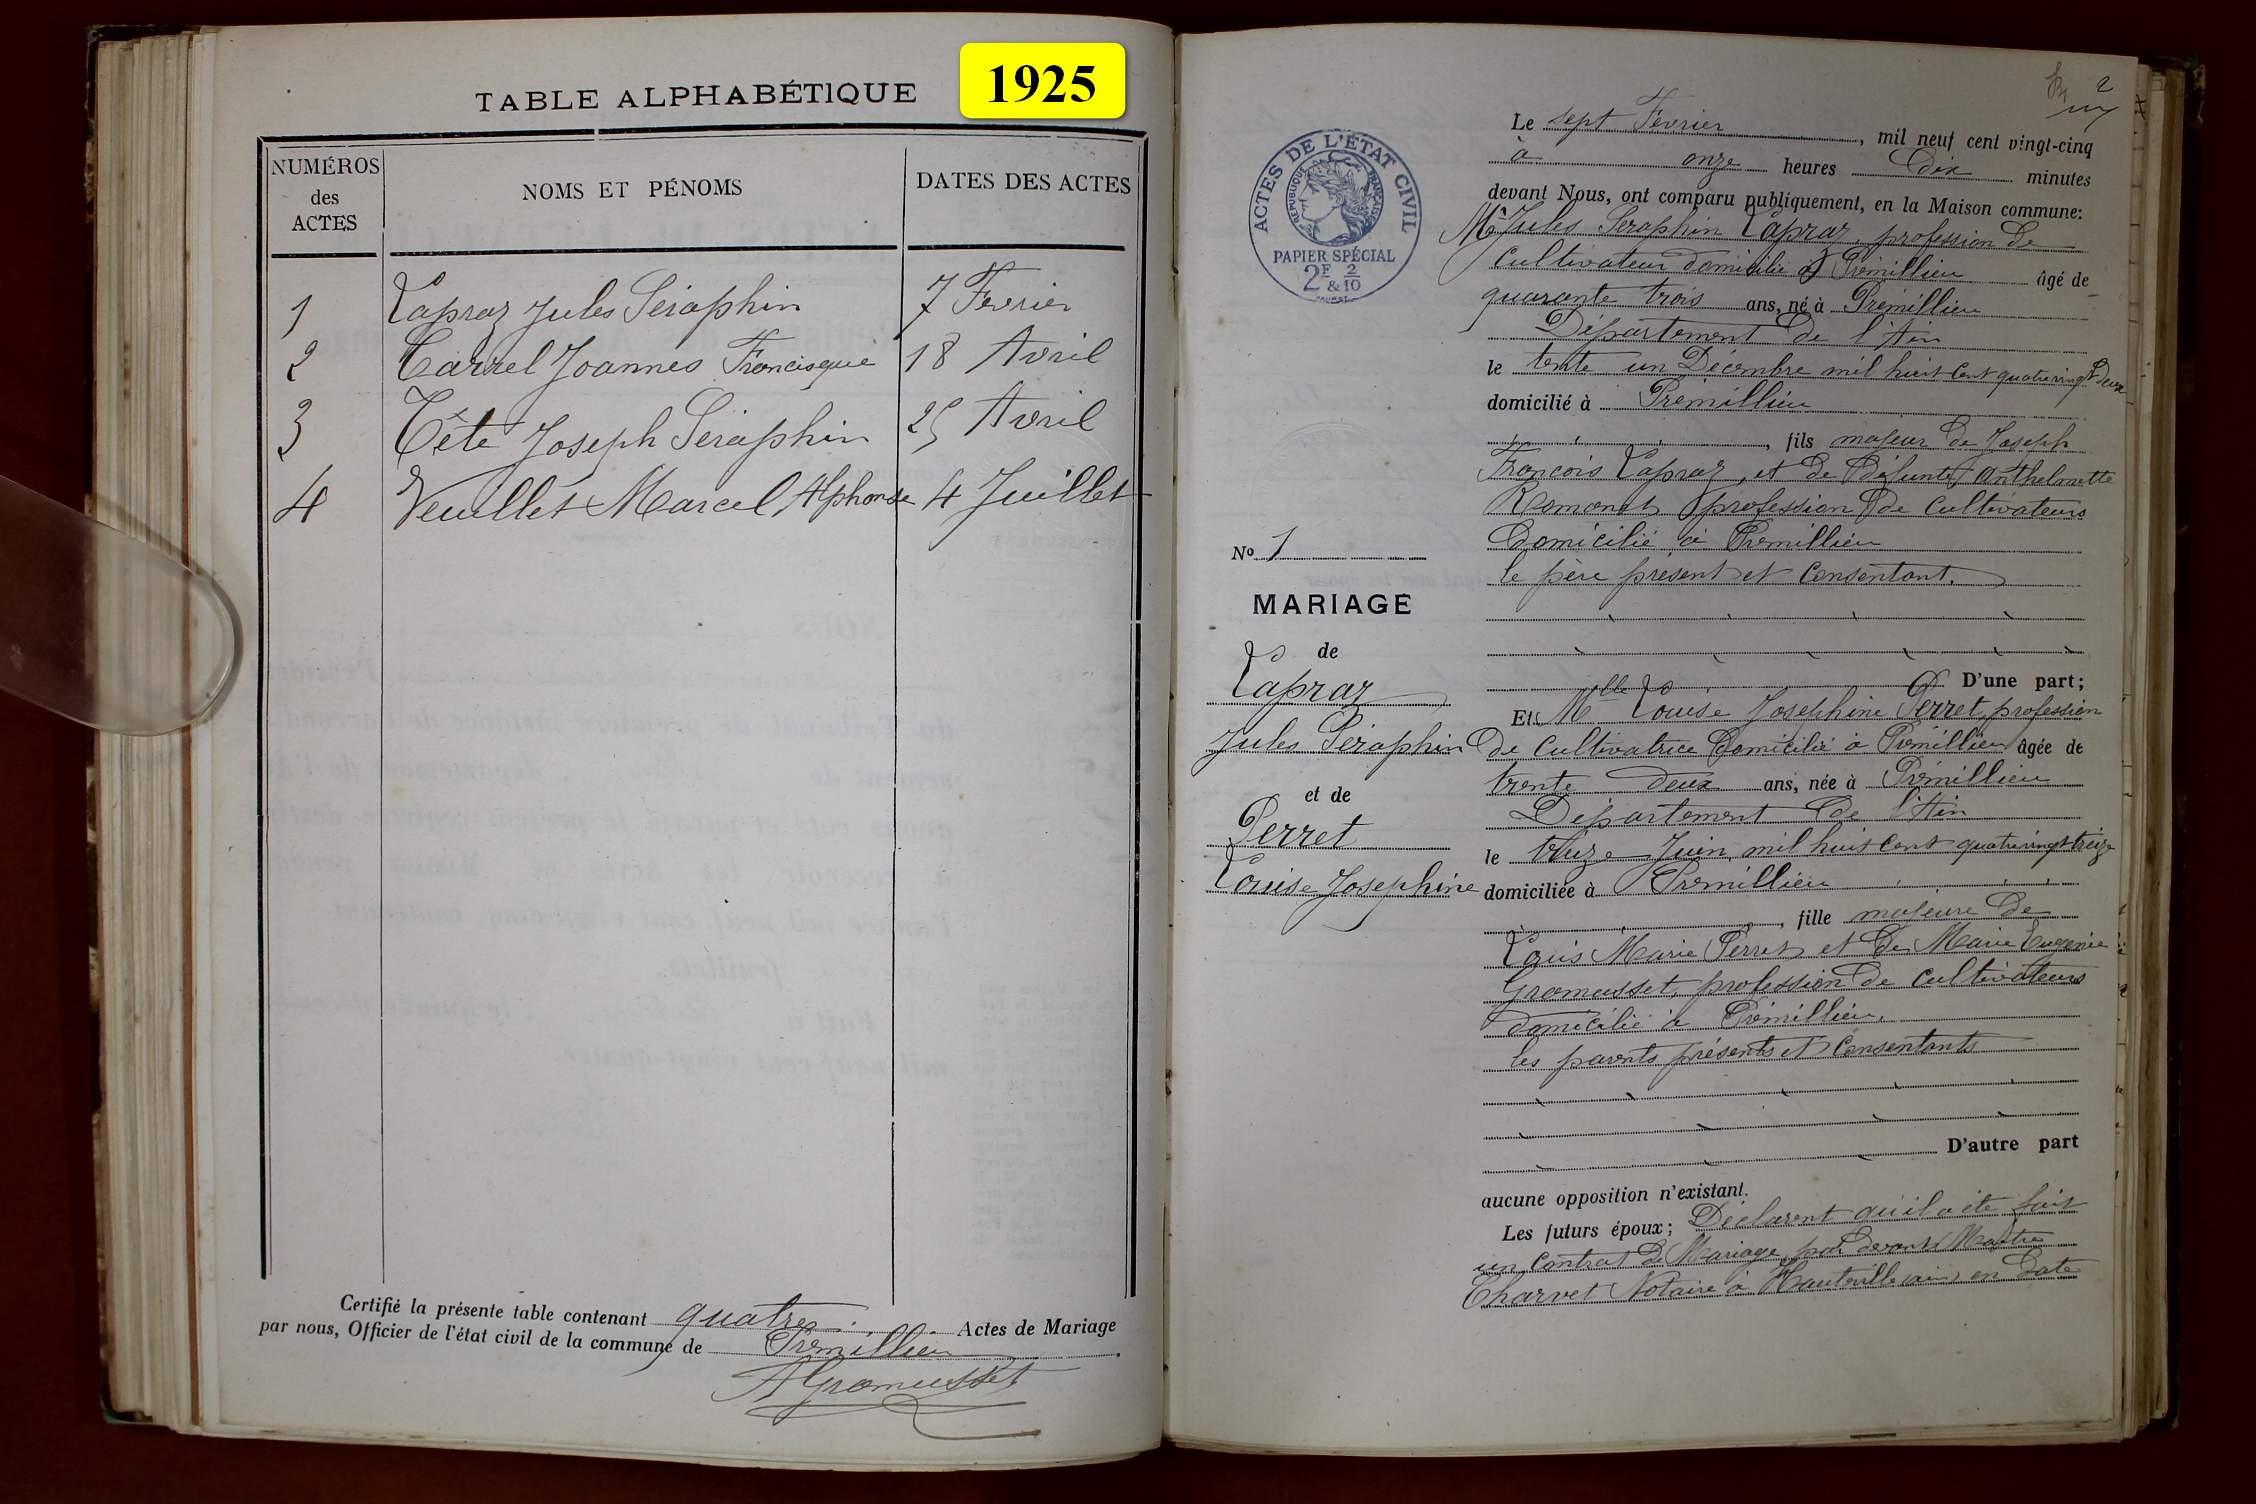 1925
TABLE ALPHABÉTIQUE
NUMÉROS
des
ACTES
NOMS ET PÉNOMS
DATES DES ACTES
1 Lapraz Jules Séraphin 7 Fevrier
2 Carrel Joannes Francisque 18 Avril
3 Tête Joseph Séraphin 25 Avril
4 Veuillet Marcel Alphonse 4 Juillet
Certifié la présente table contenant quatre Actes de Mariage
par nous, Officier de l'état civil de la commune de Prémillieu
AGromusset
2
ACTES DE L'ÉTAT CIVIL
RÉPUBLIQUE FRANÇAISE
PAPIER SPÉCIAL
2F 2/10
&
No 1
MARIAGE
de
Lapraz
Jules Séraphin
et de
Perret
Louise Josephine
Le sept Fevrier, mil neuf cent vingt-cinq
à onze heures Dix minutes
devant Nous, ont comparu publiquement, en la Maison commune:
Mr Jules Seraphin Lapraz, profession de
cultivateur domicilié à Prémillieu âgé de
quarante trois ans, né à Prémillieu
Département de l'Ain
le trente un Décembre mil huit cent quatre vingt Deux
domicilié à Prémillieu
, fils majeur de Joseph
François Lapraz, et de Défunte Anthelmette
Romonet profession de cultivateurs
Domicilié à Prémillieu
le père présent et consentant.
D'une part;
Et Mlle Louise Josephine Perret, profession
De cultivatrice Domicilié à Prémillieu âgée de
trente deux ans, née à Prémillieu
Département de l'Ain
le treize Juin mil huit cent quatre vingt treize
domiciliée à Premillieu
, fille majeure de
Louis Marie Perret et de Marie Eugenie
Gromusset, profession de cultivateurs
domicilié à Prémillieu.
les parents présents et consentants
D'autre part
aucune opposition n'existant.
Les futurs époux; Déclarent qu'il a été fait
un contrat de Mariage, par devant Maitre
Charvet Notaire à Hauteville (ain) en date